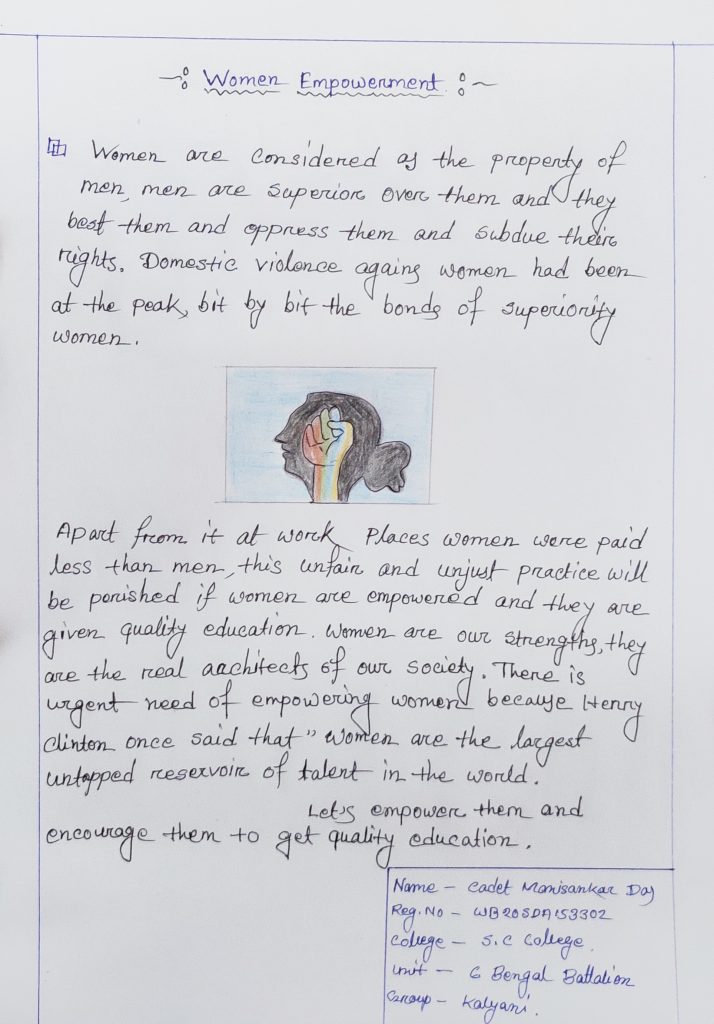 Women Empowerment
Women are considered as the property of
men, men are superior over them and they
best them and oppress them and subdue their
rights. Domestic violence agains women had been
at the peak, bit by bit the bonds of superiority
women.
Apart from it at work places women were paid
less than men, this unfair and unjust practice will
be perished if women are empowered and they are
given quality education. Women are our strengths, they
are the real architects of our society. There is
urgent need of empowering women because Henry
Clinton once said that " women are the largest
untapped reservoir of talent in the world.
Let's empower them and
encourage them to get quality education.
Name - Cadet Manisankar Das
Reg. No - WB20SDA153302
College - S.C College.
Unit - 6 Bengal Battalion
Group - Kalyani.